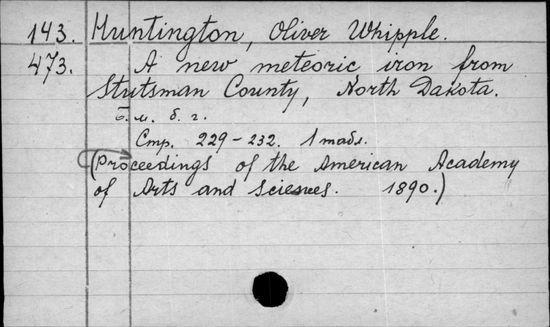 143. Huntington, Oliver Whipple.
473. A new meteoric iron from
Stutsman County, North Dakota.
Б. м. б. г.
Стр. 229-232. 1 табл.
(Proceedings of the American Academy
of Arts and Sciences. 1890.)